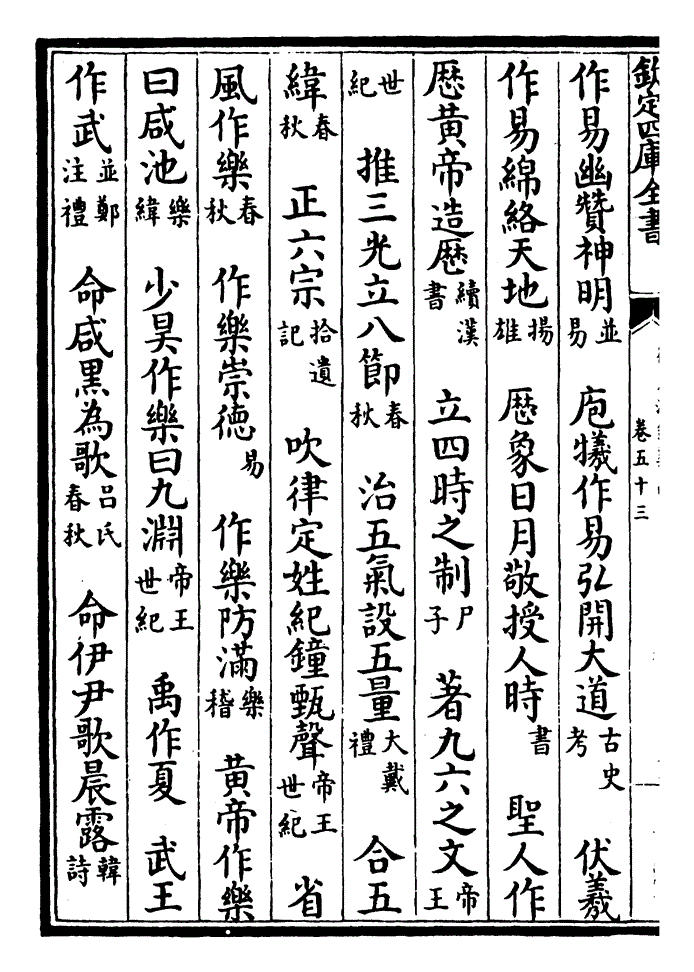 欽定四庫全書
卷五十三
作易幽贊神明並易　庖犧作易弘開大道古史考　伏羲
作易綿絡天地揚雄　歴象日月敬授人時書　聖人作
歴黄帝造歴續漢書　立四時之制尸子　著九六之文帝王
世紀　推三光立八節春秋　治五氣設五量大戴禮　合五
緯春秋　正六宗拾遺記　吹律定姓紀鐘甄聲帝王世紀　省
風作樂春秋　作樂崇德易　作樂防滿樂稽　黄帝作樂
曰咸池樂緯　少昊作樂曰九淵帝王世紀　禹作夏　武王
作武並鄭注禮　命咸黑為歌吕氏春秋　命伊尹歌晨露韓詩